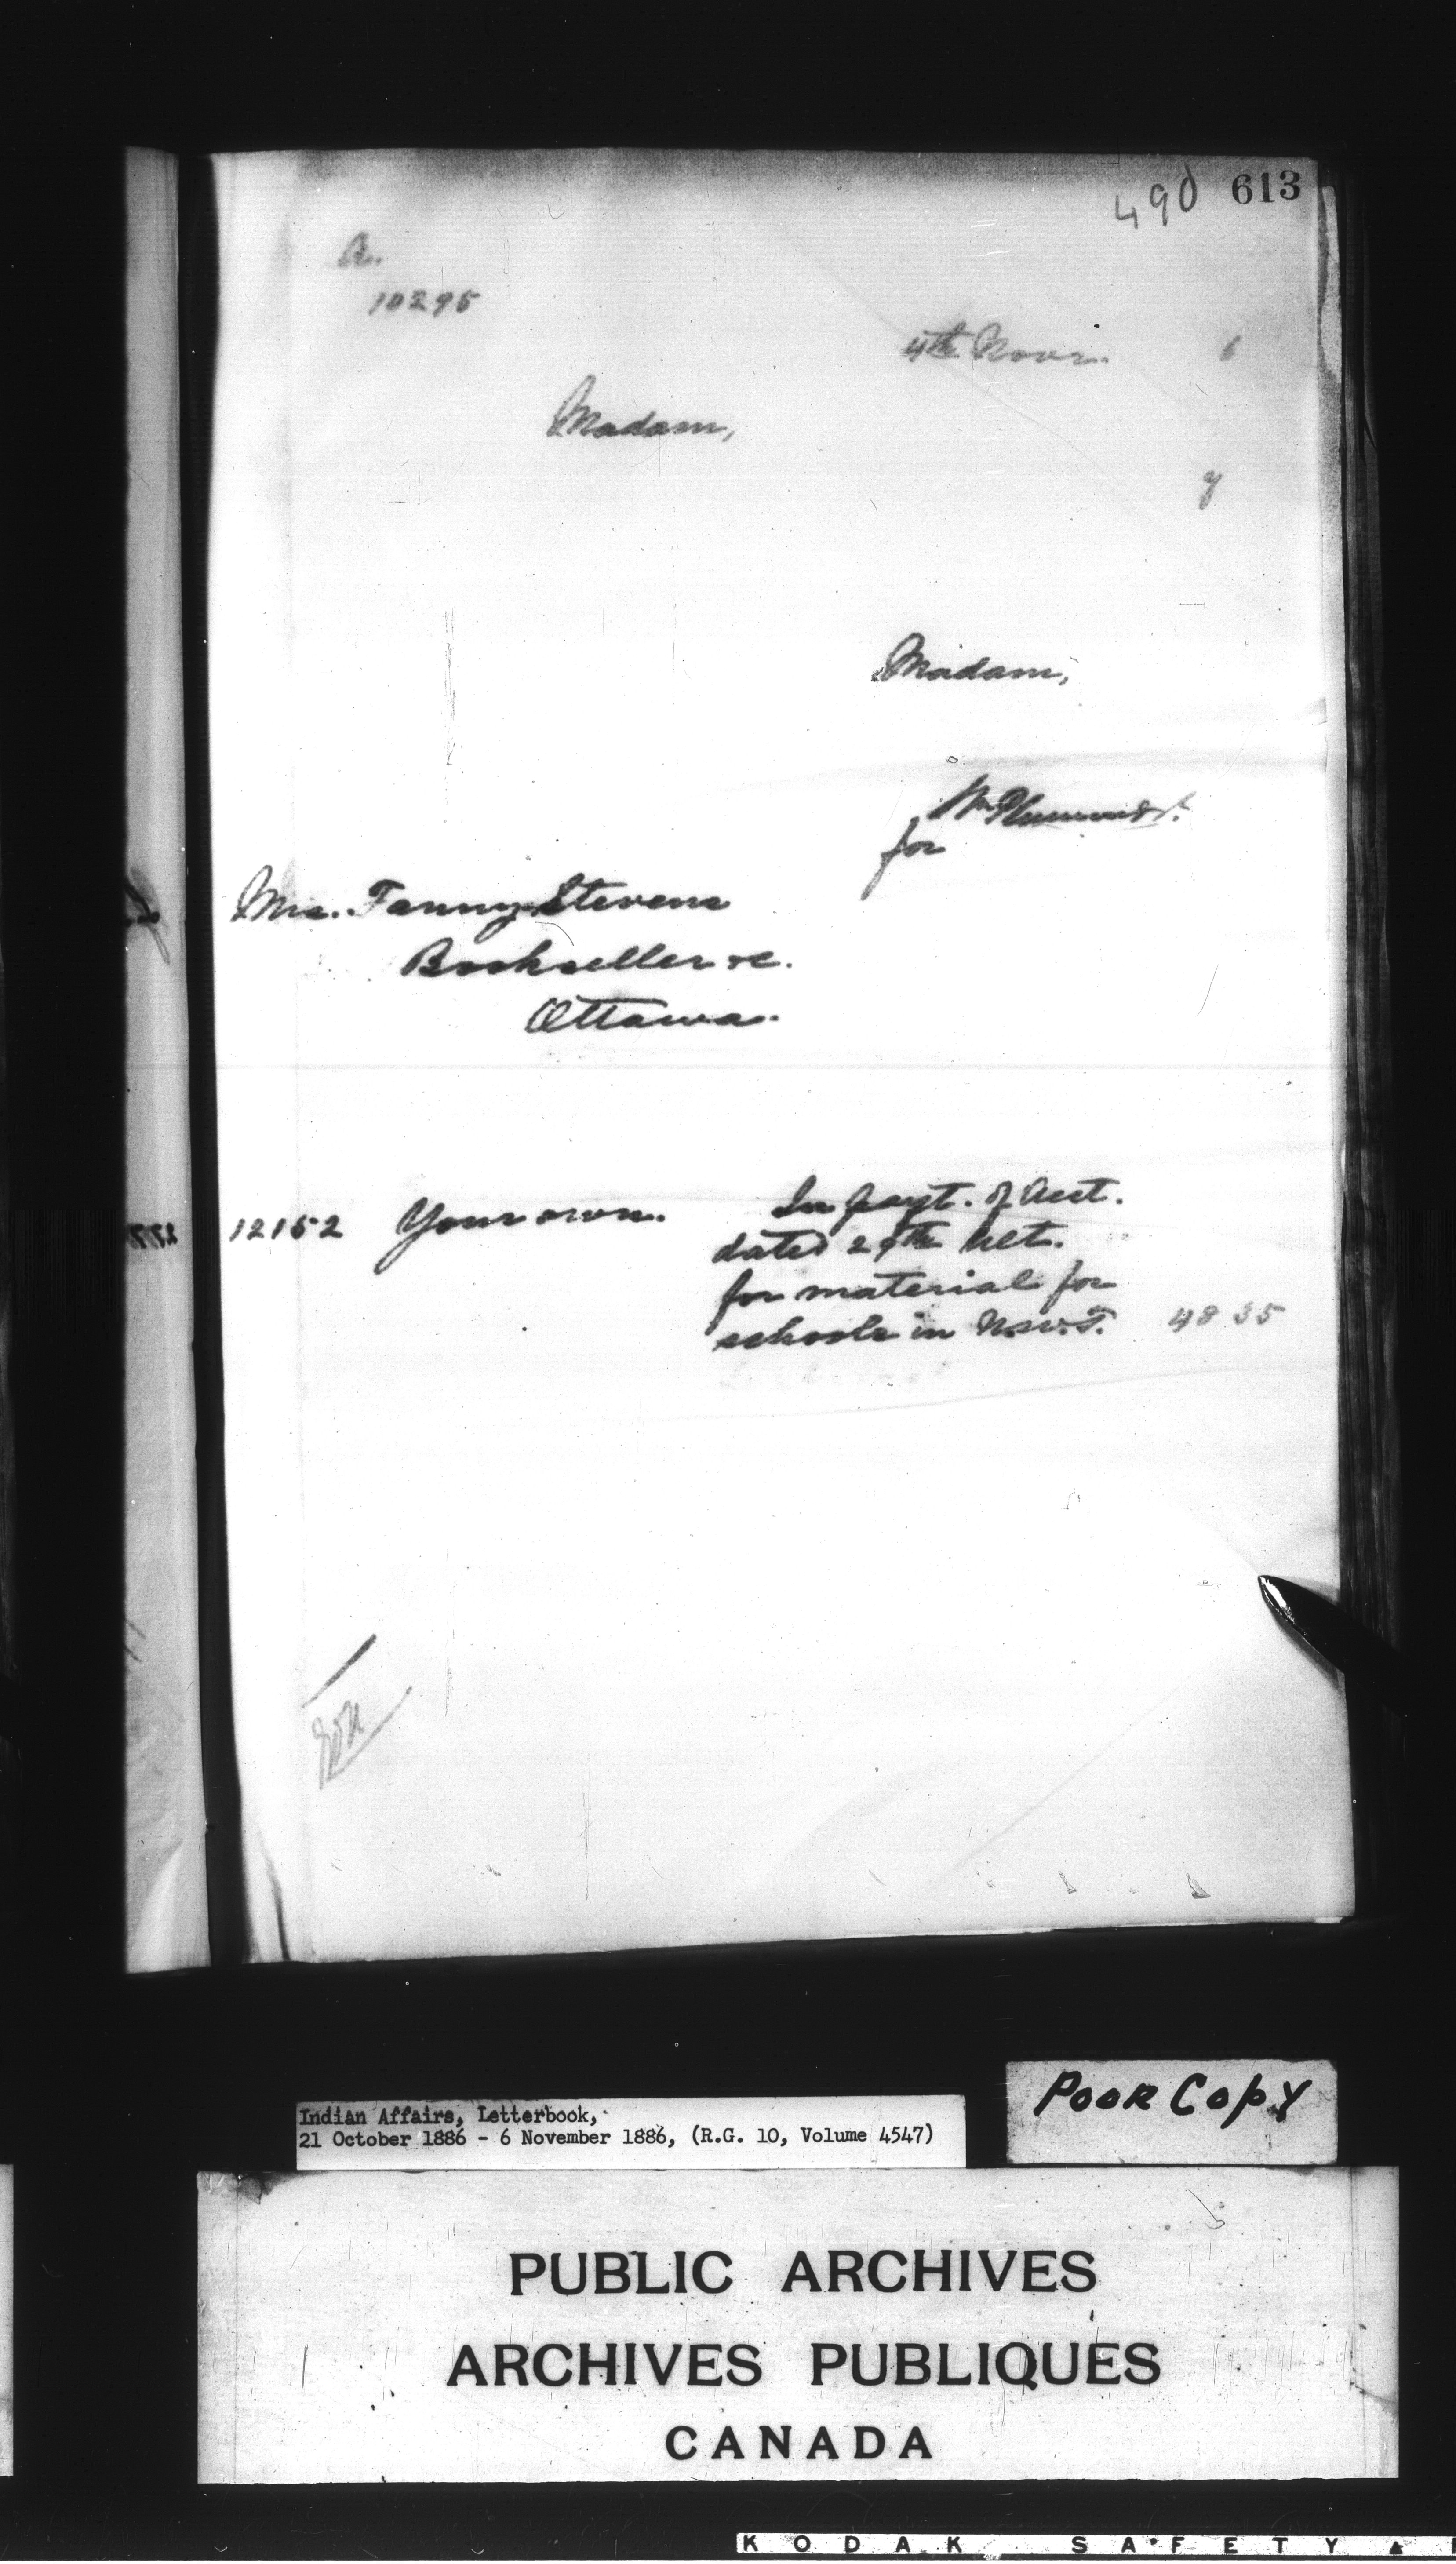 490 613
A.
10295
4th Novr. 6
Madam,
y
Madam,
Wm Plummer
for
Mrs. Fanny Stevens
Bookseller &c.
Ottawa.
12152 Your own. In payt. of Acct.
dated 29th Ult.
for material for
schools in N.W.T. 48 35
Poor Copy
Indian Affairs, Letterbook,
21 October 1886 - 6 November 1886, (R.G. 10, Volume 4547)
PUBLIC ARCHIVES
ARCHIVES PUBLIQUES
CANADA
KODAK SAFETY